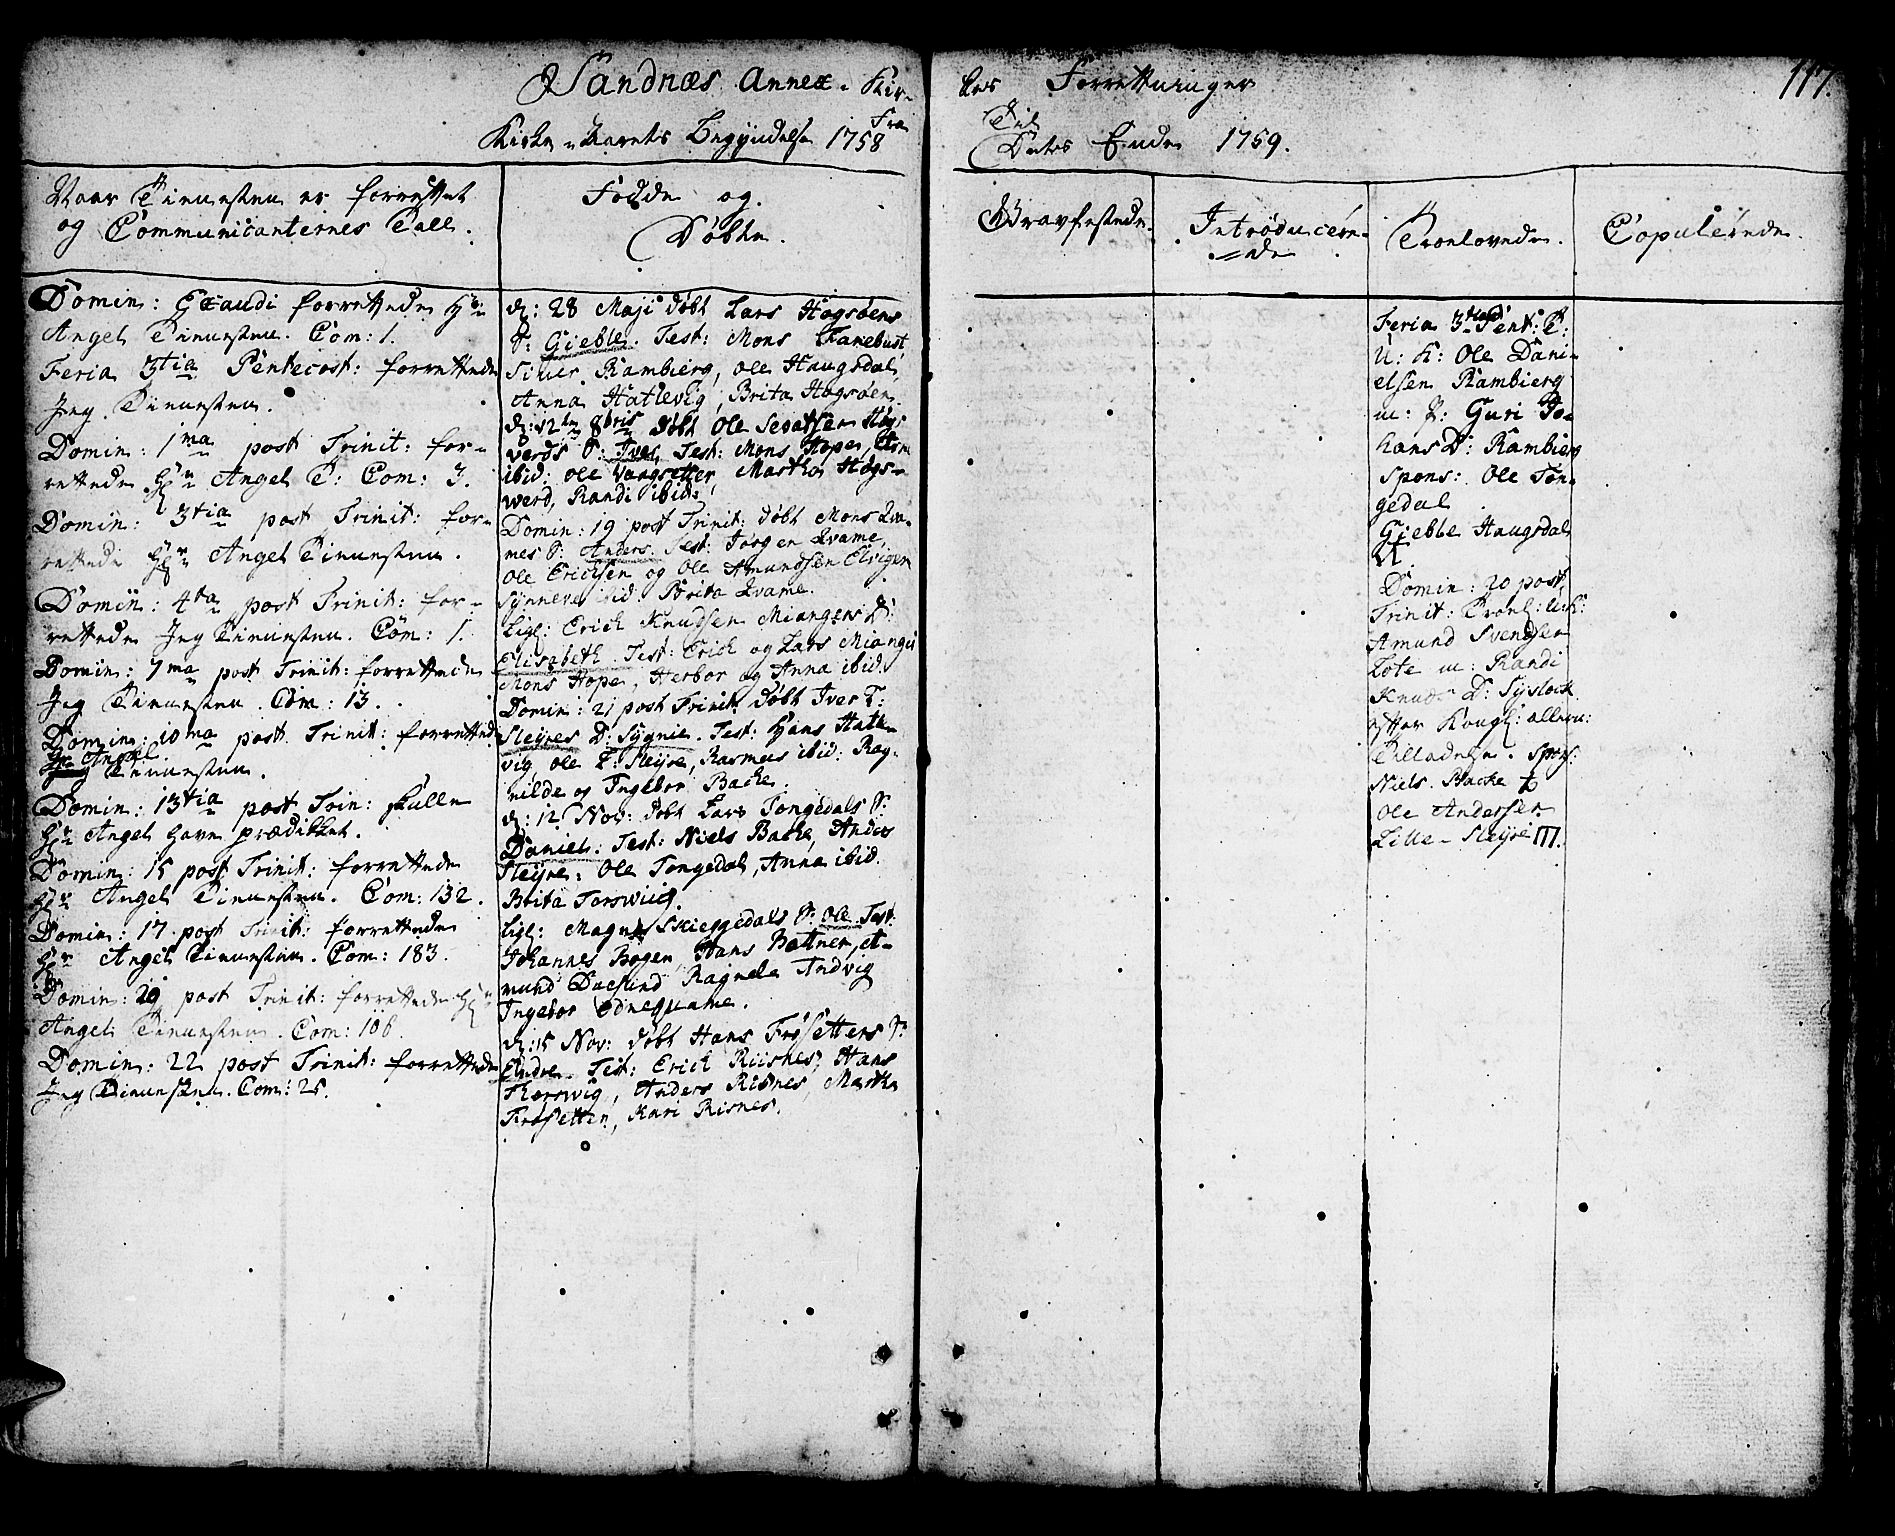 Sandnæs Annex-Kir-
Fra
Kirke-Aarets Begyndelse 1758
Naar Tienesten er forrettet
og Communicanternes Tall.
Fødde og
Døbte.
Domin: Exaudi forrettede Hr
Angel Tienesten. Com: 1.
Feria 3tia Pentecost: forrettede
Jeg Tienesten.
Domin: 1ma post Trinit: for-
rettede Hr Angel T: Com: 3.
Domin: 3tia post Trinit: for-
rettede Hr Angel Tienesten.
Domin: 4ta post Trinit: for-
rettede Jeg Tienesten. Com: 1.
Domin: 7ma post Trinit: forrettede
Jeg Tienesten. Com: 13.
Domin: 10ma post Trinit: forrettede
Hr Angel
Tienesten.
Domin: 13tia post Trin: skulle
Hr Angel have prædikket.
Domin: 15 post Trinit: forrettede
Hr Angel Tienesten. Com: 132.
Domin: 17 post Trinit: forrettede
Hr Angel Tienesten. Com: 183.
Domin: post Trinit: forrettede Hr
Angel Tienesten. Com: 106.
Domin: 22 post Trinit: forrettede
Jeg Tienesten. Com: 25.
d: 28 Maji døbt Lars Hogsøens
S: Gieble. Test: Mons Fanebust,
Siuer Rambierg, Ole Haugsdal,
Anna Hatlevig, Brita Hogsøen.
d: 12te 8bris døbt Ole Høgs-
verds S: Iver Test: Mons Hope,
ibid: Ole Vaagsetter, Martha Høgs-
werd, Randi ibid:
Domin: 19 post Trinit: døbt Mons Qva-
mes S: Anders. Test: Jørgen Qvame,
Ole Erichsen og Ole Amundsen Elvigen
Synneve ibid: Brita Qvame.
Ligl: Erich Knudsen Miangers D:
Elisabeth. Test: Erich og Lars Mianger
Mons Hope, Herbor og Anna ibid.
Domin: 21 post Trinit: døbt Iver T:
Sleyres D: Sygnie. Test: Hans Hatle-
vig, Ole T: Sleyre, Rasmus ibid: Rag-
nilde og Ingebor Backe.
d: 12 Nov: døbt Lars Tongedals S:
Daniel: Test: Niels Backe, Anders
Sleyre: Ole Tongedal, Anna ibid.
Brita Torswiig.
Ligl: Magne Skieggedals S: Ole Test:
Johannes Bogen, Hans Battner,
mund Duesund Ragnele Andvig
Ingebor Odnequame.
d: 15 Nov: døbt Hans Frøsetters S:
Endre. Test: Erich Riisnes, Hans
Thorswig, Anders Risnes, Martha
Frøsetter, Kari Risnes.
kes Forrettninger
Til
Dates Ende 1759.
117.
Gravfestede.
Introducere-
de
Troelovede.
Copulerede.
Feria 3tia Pent: T:
U: K: Ole Dani-
elsen Rambierg
m: P: Guri Jo-
hans D: Rambierg
Spons: Ole Ton-
gedal
Gieble Haugsdal
Domin: 20 post
Trinit: Troel:
Amund Svendsen
Lote m: Randi
Knuds D: Syslack
efter Kongl: allern:
Tilladelse. Spons:
Niels Backe
Ole Andersen
Lille-Sleyre